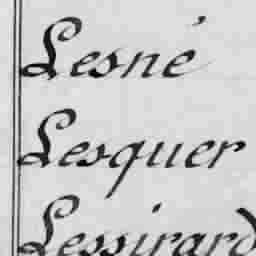 Lesné
Lesquer
Lessirard